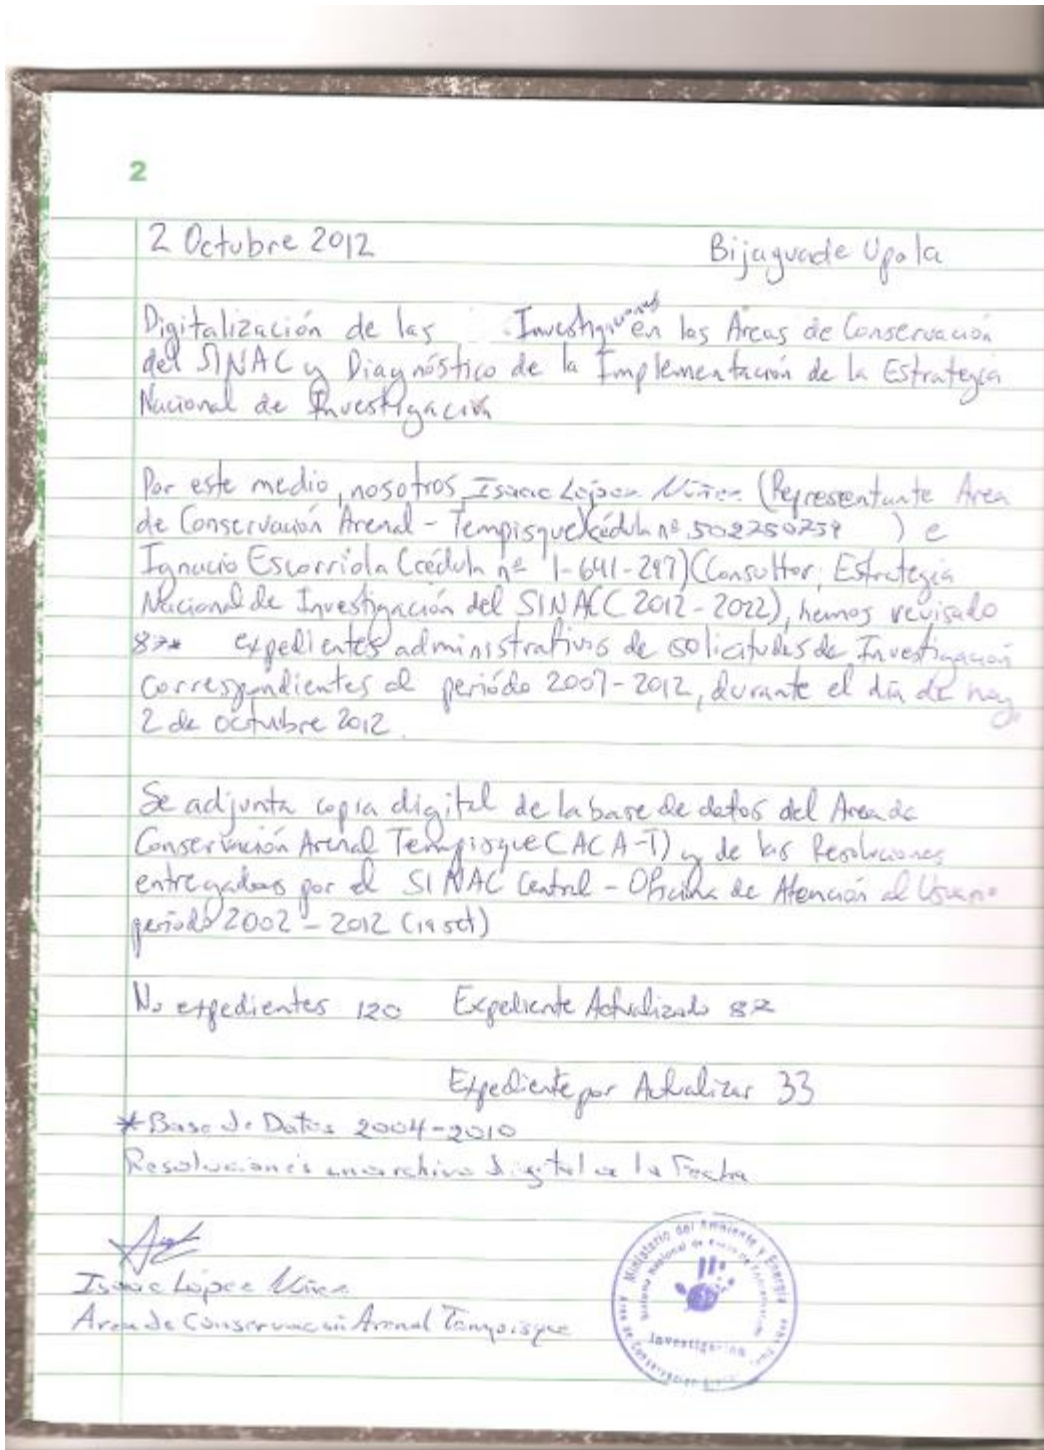 2
2 Octubre 2012 Bijagua de Upala
Digitalización de las Investigaciones en las Áreas de Conservación
del SINAC y Diagnóstico de la Implementación de la Estrategia
Nacional de Investigación
Por este medio, nosotros Isaac López Núñez (Representante Area
de Conservación Arenal - Tempisque) cédula nº 502750759 ) e
Ignacio Escorriola (cédula nº 1-641-297) (Consultor, Estrategia
Nacional de Investigación del SINAC (2012-2022), hemos revisado
87* expedientes administrativos de solicitudes de Investigación
correspondientes al período 2007-2012, durante el día de hoy,
2 de octubre 2012.
Se adjunta copia digital de la base de datos del Area de
Conservación Arenal Tempisque (ACA-T) y de las Resoluciones
entregadas por el SINAC Central - Oficina de Atención al Usuario
período 2002 - 2012 (19 set)
No expedientes 120 Expediente Actualizado 87
Expediente por Actualizar 33
*Base de Datos 2004-2010
Resoluciones en archivo digital a la Fecha
Isaac López Núñez
Area de Conservación Arenal Tempisque
Ministerio del Ambiente y Energía
Sistema Nacional de Areas de Conservación
Investigación